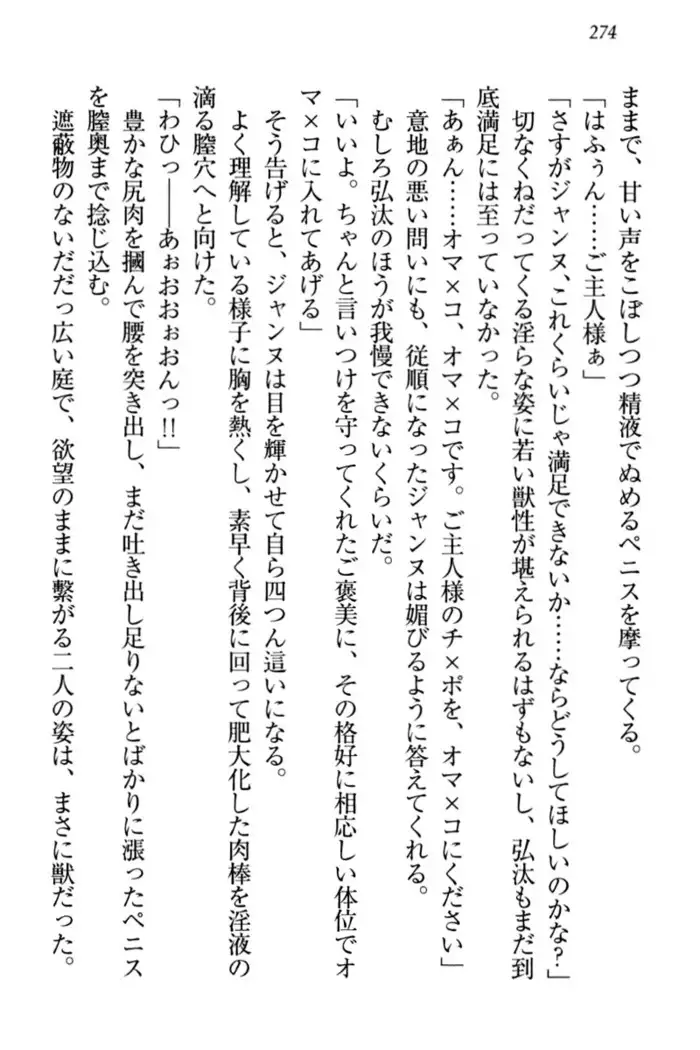 274
ままで、甘い声をこぼしつつ精液でぬめるペニスを摩ってくる。
「はふぅん……ご主人様ぁ」
「さすがジャンヌ、これくらいじゃ満足できないか……ならどうしてほしいのかな?」
切なくねだってくる淫らな姿に若い獣性が堪えられるはずもないし、弘汰もまだ到
底満足には至っていなかった。
「あぁん……オマ×コ、オマ×コです。ご主人様のチ×ポを、オマ×コにください」
意地の悪い問いにも、従順になったジャンヌは媚びるように答えてくれる。
むしろ弘汰のほうが我慢できないくらいだ。
「いいよ。ちゃんと言いつけを守ってくれたご褒美に、その格好に相応しい体位でオ
マ×コに入れてあげる」
そう告げると、ジャンヌは目を輝かせて自ら四つん這いになる。
よく理解している様子に胸を熱くし、素早く背後に回って肥大化した肉棒を淫液の
滴る膣穴へと向けた。
「わひっ――あぉおおぉおんっ!!」
豊かな尻肉を摑んで腰を突き出し、まだ吐き出し足りないとばかりに漲ったペニス
を膣奥まで捻じ込む。
遮蔽物のないだだっ広い庭で、欲望のままに繋がる二人の姿は、まさに獣だった。